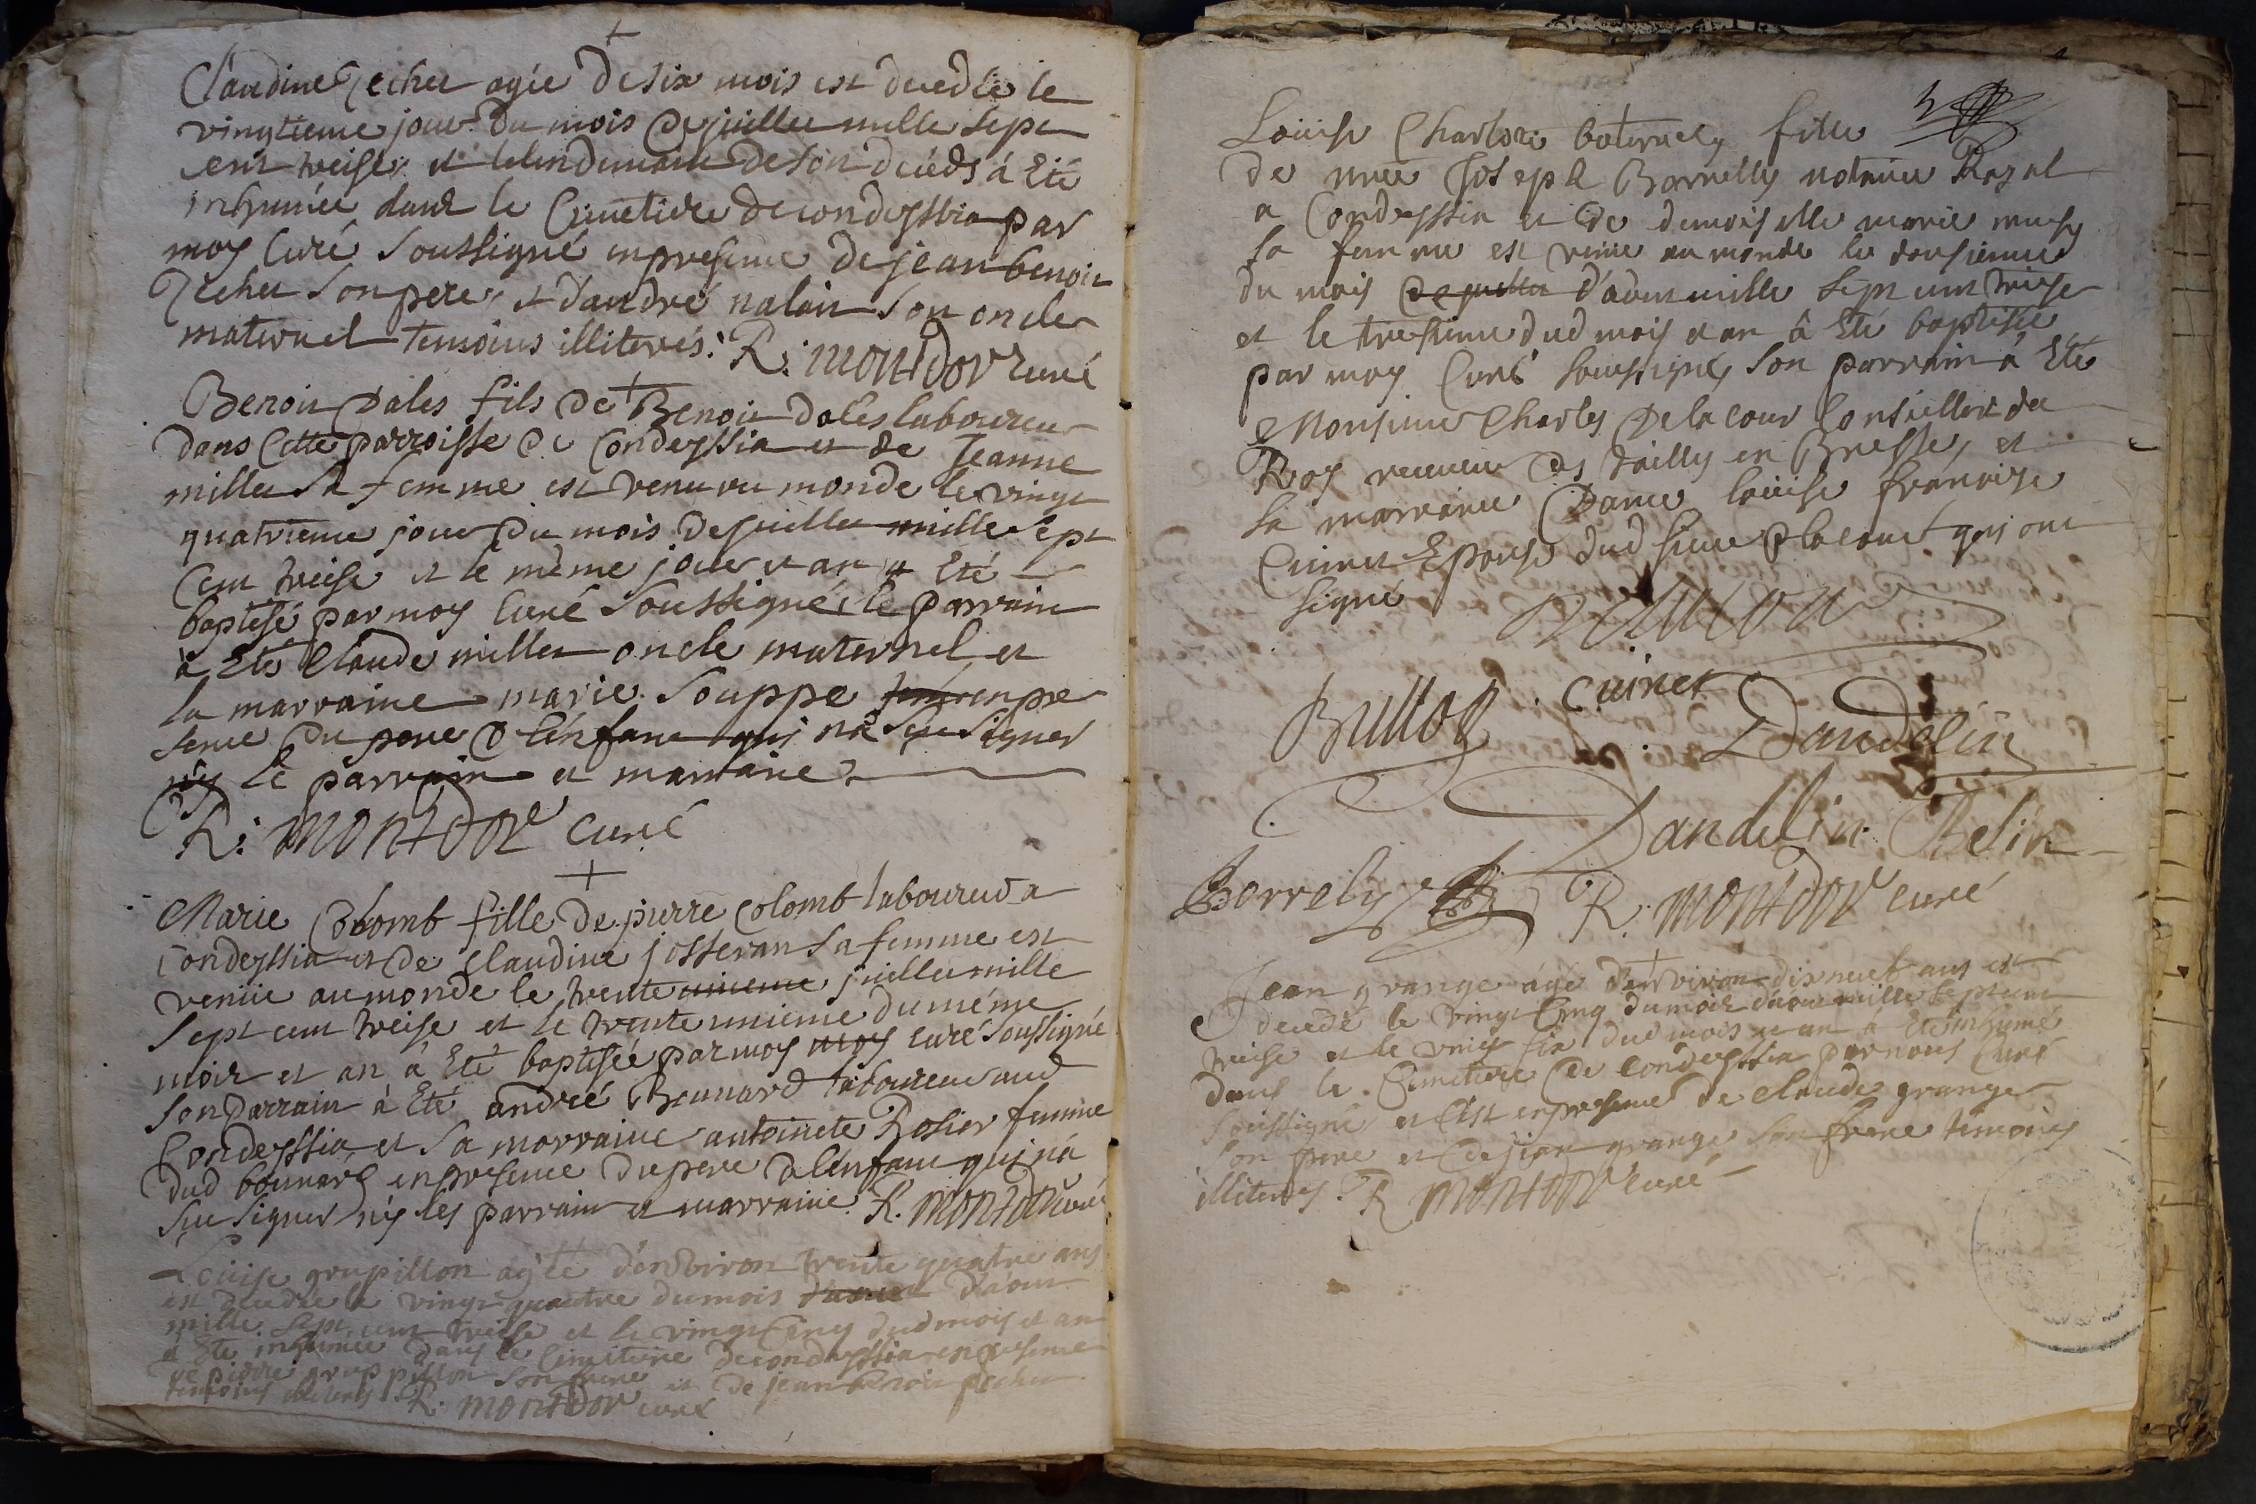 Claudine agée de six mois est decedée le
vingtieme jour du mois de juillet mille sept
cent treise et le lendemain de son décéds à Eté
inhumée dans le Cimetiere de condeyssia par
moy Curé soussigné en presence de jean benoit
son pere, et d'andré nalair son oncle
maternel temoins illiterés. R: montdor curé
Benoit Dalés fils de Benoit dalés laboureur
dans Cette parroisse de Condeyssia et de Jeanne
millet sa femme est venu au monde le vingt
quatrieme jour du mois de juillet mille sept
Cent treise et le même jour et an a Eté
baptisé par moy Curé soussigné, le parrain
à Eté Claude millet oncle maternel et
la marraine marie souppe en pre
sence du pere de l'enfant qui n'a sçu signer
ny le parrain et marraine
R: montdor curé
Marie Colomb fille de pierre colomb laboureur a
Condeyssia et de claudine josseran sa femme est
venüe au monde le trente unieme juillet mille
sept cent treise et le trente unieme du même
mois et an à Eté baptisée par moy moy curé soussigné
son parrain à Eté andré Bonnard laboureur aud
Condeyssia et sa marraine antoinete Rosier femme
dud bonnard en presence du pere de l'enfant qui n'a
sçu signer ny les parrain et marraine. R. montdor curé
Loüise grupillon agée d'environ trente quatre ans
est decedée le vingt quatre du mois d'aout
mille sept cent treise et le vingt cinq dud mois et an
a Eté inhumée dans le cimetiere de condeyssia en presence
de pierre gruppillon son frere et de jean benoit
temoins illiterés R. montdor curé
Loüise Charlote fille
de mre Joseph Borrelly notaire Royal
a Condeyssia et de demoiselle marie
sa femme est venüe au monde le dousieme
du mois de juillet d'aout mille sept cent treise
et le tresieme dud mois et an à Eté baptisée
par moy Curé soussigné, son parrain à Eté
Monsieur Charles Delacour Conseiller du
Roy receveur des tailles en Bresse, et
sa marraine Dame loüise françoise
Cuinet Epouse dud sieur Delacour qui ont
signé
Cuinet
Daudelin
Dandelin Belin
Borrely R. montdor curé
Jean grange agé d'environ dix neuf ans est
decedé le vingt Cinq du mois d'aout mille sept cent
treise et le vingt six dud mois et an à Eté inhumé
dans le Cimetiere de Condeyssia par nous Curé
soussigné et C'est en presence de claude grange
son pere et de jean grange son frere temoins
illiterés. R montdor curé